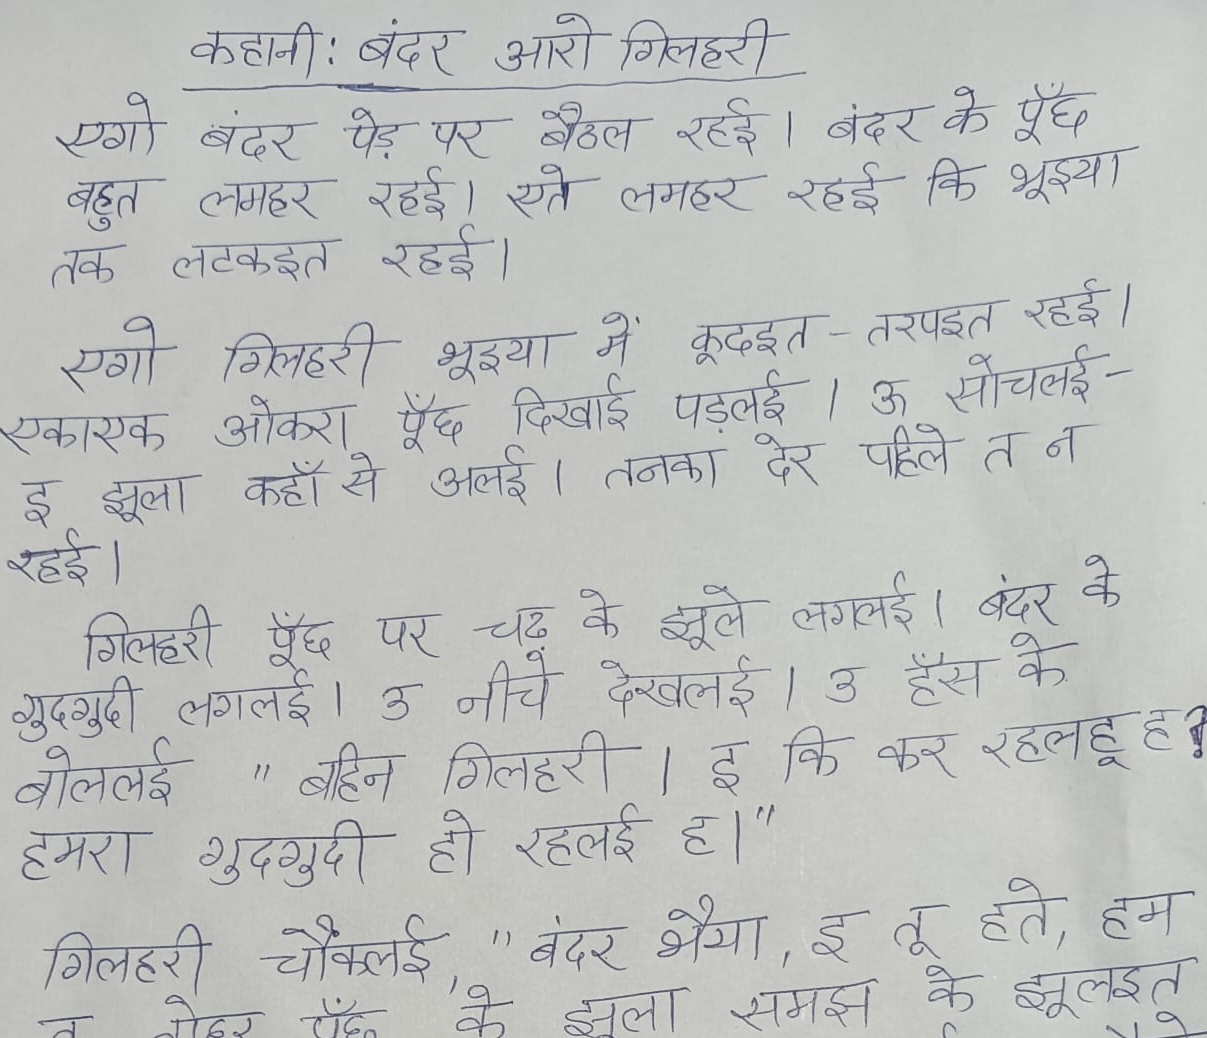 कहानी: बंदर आरो गिलहरी
एगो बंदर पेड़ पर बैठल रहई। बंदर के पूँछ
बहुत लमहर रहई। एते लमहर रहई कि भूइया
तक लटकइत रहई।
एगो गिलहरी भूइया में कूदइत - तरपइत रहई।
एकाएक ओकरा पूँछ दिखाई पड़लई। ऊ सोचलई-
इ झूला कहाँ से अलई। तनका देर पहिले त न
रहई।
गिलहरी पूँछ पर चढ़ के झूले लगलई। बंदर के
गुदगुदी लगलई। उ नीचें देखलई। उ हँस के
बोललई " बहिन गिलहरी। इ कि कर रहलहू ह?
हमरा गुदगुदी हो रहलई ह।"
गिलहरी चौंकलई, " बंदर भैया, इ तू हते, हम
त तोहर पूँछ के झूला समझ के झूलइत